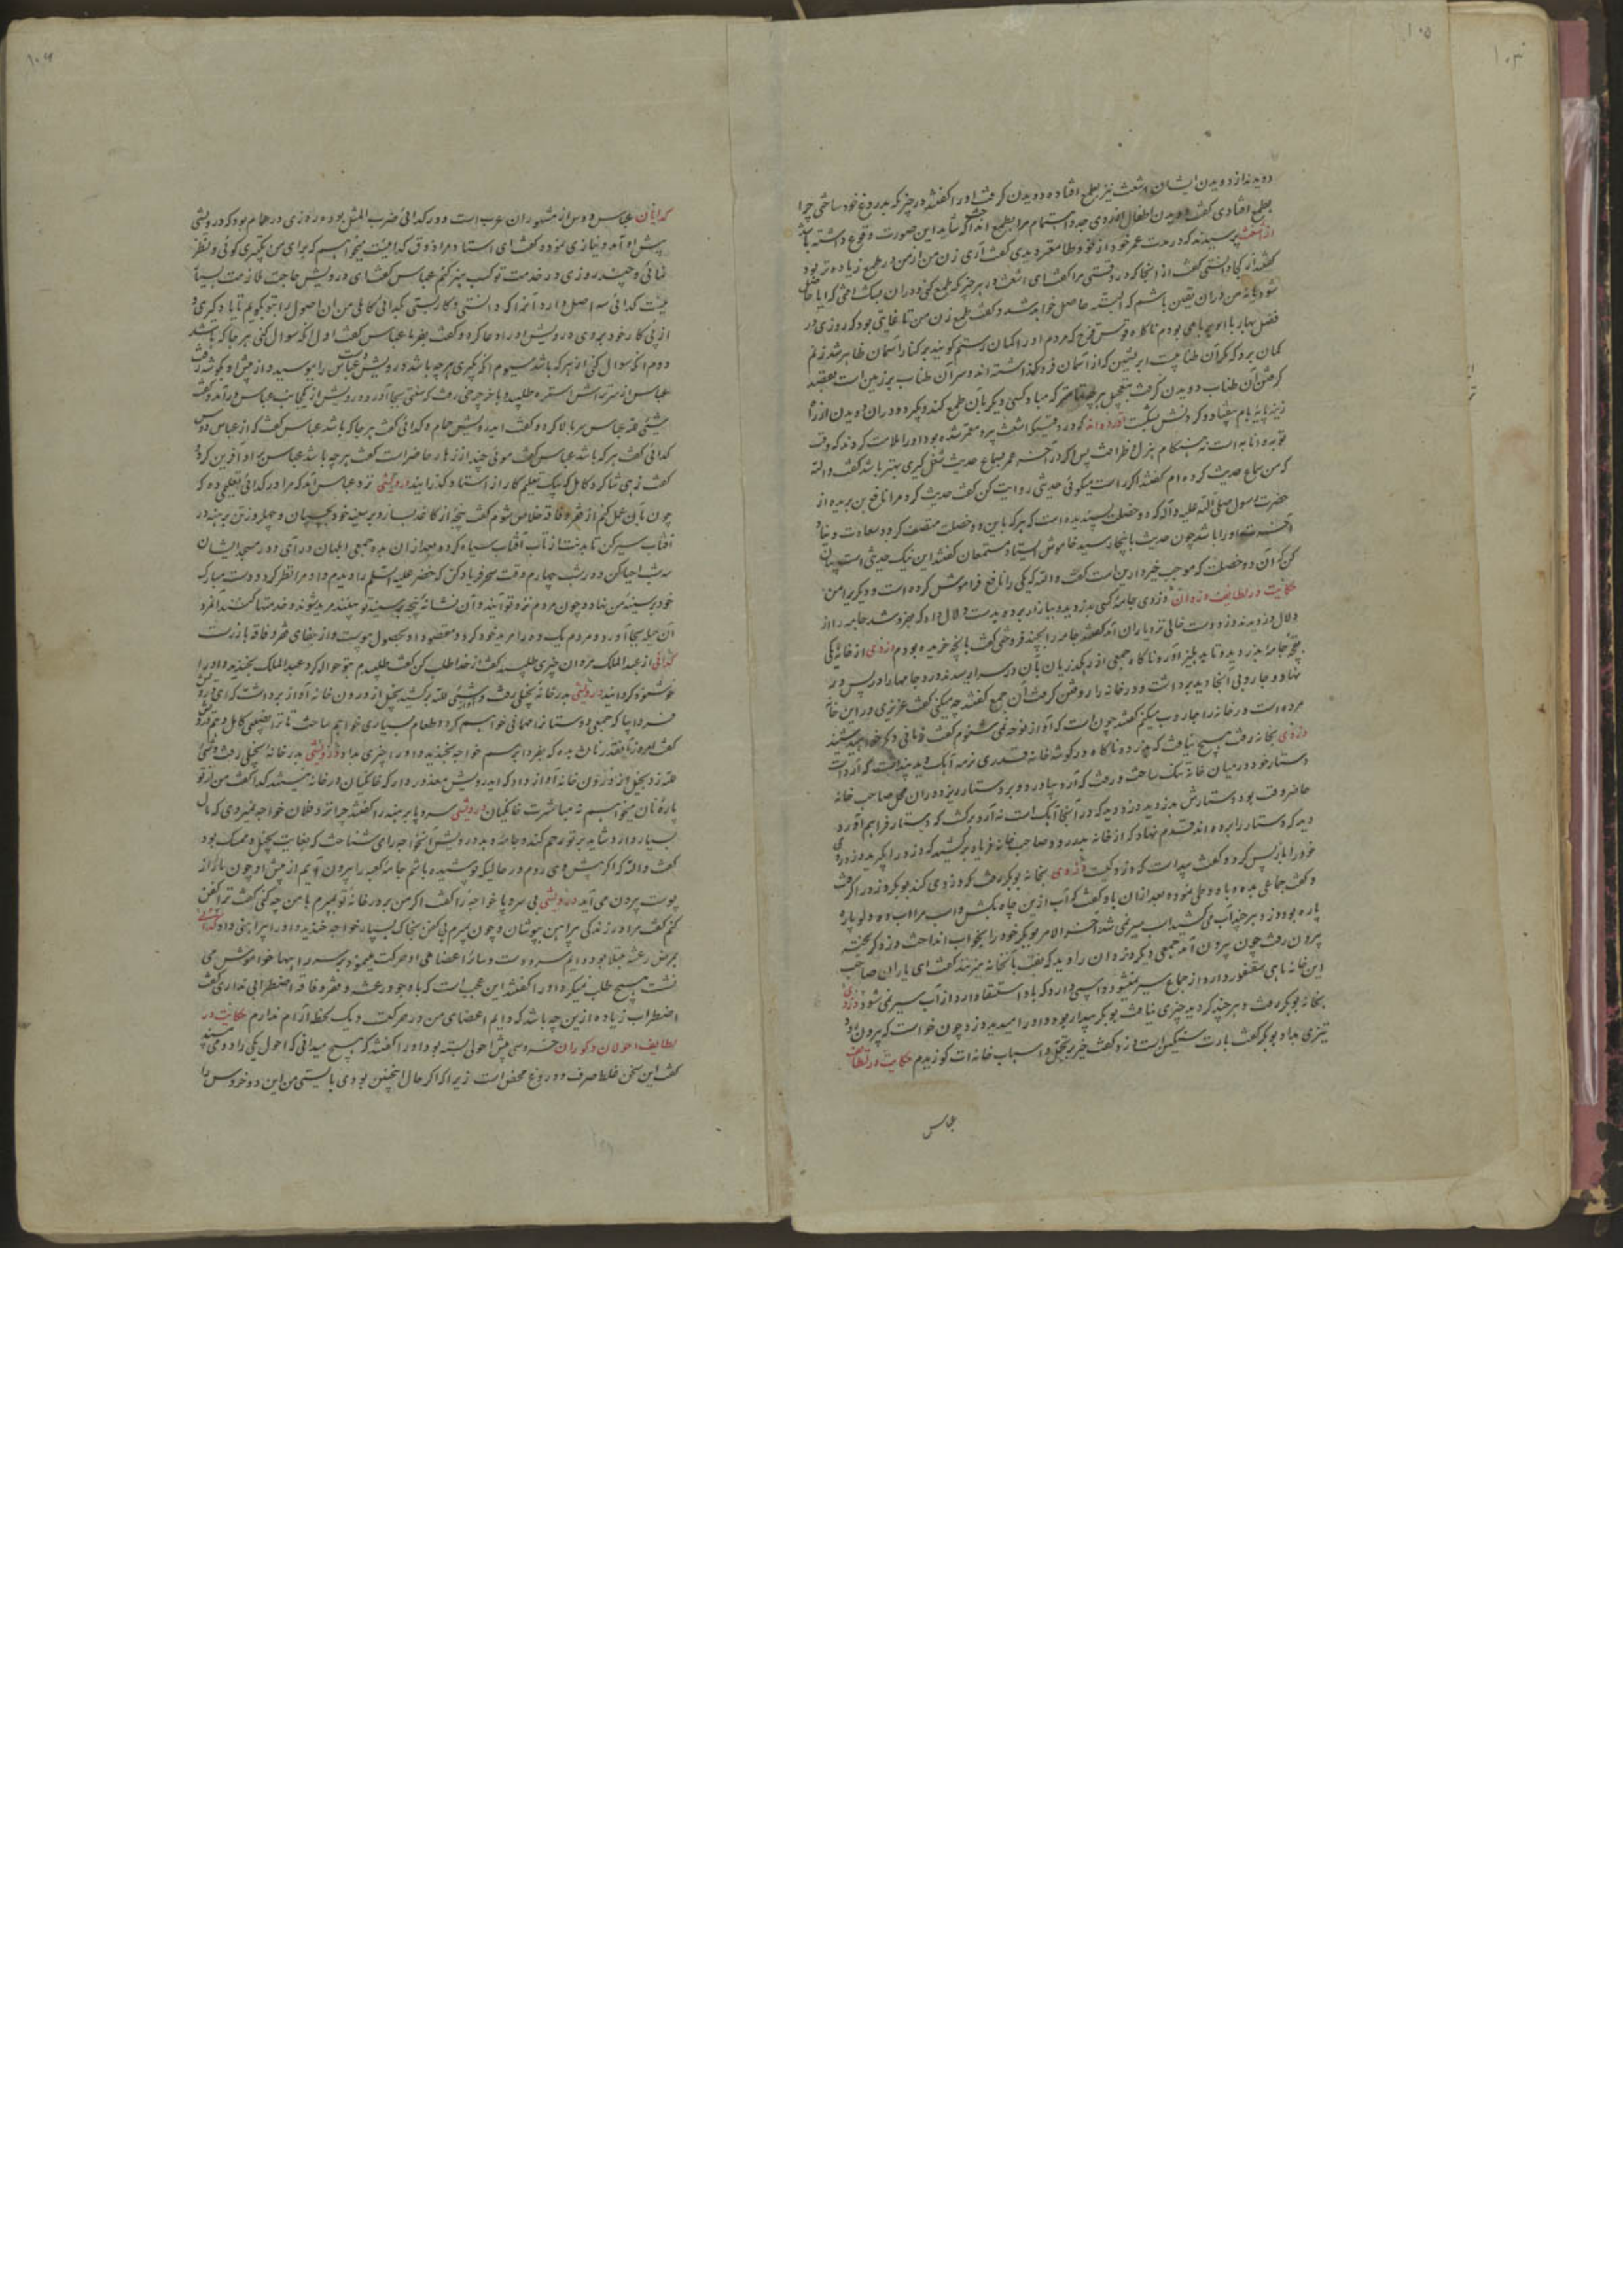 ۱۰۵
دویدند از دویدن ایشان اشعث نیز بطمع افتاده دویدن گرفت او را گفتند در چیزی که بدروغ خود ساختی چرا
بطمع افتادی گفت دویدن اطفال از روی جد و اهتمام مرا بطمع انداخت که شاید این صورت وقوع داشته باشد
از اشعث پرسیدند که در مدت عمر خود از خود طامع‌تر دیدی گفت آری زن من از من در طمع زیاده‌تر بود
گفتند از کجا دانستی گفت از آنجا که در وقتی مرا گفت ای اشعث در هر چیز که طمع کنی و در آن بشک افتی که آیا حاصل
شود یا نه من در آن یقین باشم که البته حاصل خواهد شد و گفت طمع زن من تا غایتی بود که روزی در
فصل بهار با او بر بامی بودم ناگاه قوس قزح که مردم او را کمان رستم گویند بر کنار آسمان ظاهر شد زنم
گمان برد که مگر آن طنابیست ابریشمین که از آسمان فرو گذاشته‌اند و سر آن طناب بر زمین است بقصد
گرفتن آن طناب دویدن گرفت بتعجیل هر چه تمامتر که مبادا کسی دیگر بان طمع کند و بگیرد و در آن دویدن از راه
زینه پایه بام بیفتاد و گردنش بشکست آورده‌اند که در وقتیکه اشعث پیر و معمر شده بود او را ملامت کردند که وقت
توبه و انابه است نه هنگام هزل و ظرافت پس اگر در آخر عمر بسماع حدیث شغل گیری بهتر باشد گفت والله
که من سماع حدیث کرده‌ام گفتند اگر راست میگوئی حدیثی روایت کن گفت حدیث کرد مرا نافع بن بریده از
حضرت رسول صلی الله علیه و آله که دو خصلت پسندیده است که هر که باین دو خصلت متصف گردد سعادت دنیا و
آخرت او را باشد چون حدیث باینجا رسید خاموش ایستاد مستمعان گفتند این نیک حدیثی است بیان
کن که آن دو خصلت که موجب خیر دارین است گفت والله که یکی را نافع فراموش کرده است و دیگری را من
حکایت در لطایف دزدان دزدی جامه کسی بدزدید و ببازار برده بدست دلال داد که بفروشد جامه را از
دلال دزدیدند دزد دست خالی نزد یاران آمد گفتند جامه را بچند فروختی گفت بآنچه خریده بودم دزدی از خانه یکی
جامه بدزدید و تا بدهلیز آورد ناگاه جمعی از رهگذریان بآن در سرا رسیدند دزد جامها را در پس در
نهاد و جاروبی آنجا دید برداشت و در خانه را روفتن گرفت آن جمع گفتند چه میکنی گفت عزیزی در این خانه
مرده است در خانه را جاروب میکنم گفتند چون است که آواز نوحه نمی‌شنوم گفت فردا خواهید شنید
دزدی بخانه رفت هیچ نیافت که ببرد ناگاه در گوشه خانه قدری نرمه آهک دید پنداشت که آرد است
دستار خود در میان خانه پهن ساخت و رفت که آرد بیاورد و بر دستار ریزد در آن محل صاحب خانه
حاضر وقت بود دستارش بدزدید دزد دید که در آنجا آهک است نه آرد برگشت که دستار فراهم آورد
دید که دستار را برده‌اند قدم نهاد که از خانه بدر رود صاحب خانه فریاد برکشید که دزد را بگیرید دزد روی
خود را باز پس کرد و گفت پیداست که دزد کیست دزدی بخانه بوبکر رفت که دزدی کند بوبکر دزد را گرفت
پاره بود دزد هر چند آب میکشید اسب سیر نمی شد آخر الامر بوبکر خود را بخواب انداخت دزد گریخته
بیرون رفت چون بیرون آمد جمعی دیگر دزدان را دید که نقب بآنخانه میزنند گفت ای یاران صاحب
این خانه ماهی سقنقور دارد و از جماع سیر نمیشود و اسبی دارد که باد استسقا دارد از آب سیر نمی شود دزدی
بخانه بوبکر رفت و هر چند گردید چیزی نیافت بوبکر بیدار بود و او را میدید دزد چون خواست که بیرون رود
حکایت در لطایف
عباس
۱۰۶
گدایان عباس دوس از مشهوران عرب است و در گدائی ضرب المثل بود روزی در حمام بود که درویشی
پیش او آمد و نیازی نموده گفت ای استاد مرا ذوق گداییست میخواهم که برای من تکبیری گوئی و نظر
نمائی و چند روزی در خدمت تو کسب هنر کنم عباس گفت ای درویش حاجت ملازمت بسیار
نیست گدائی سه اصل دارد آنرا که دانستی و کار بستی بگدائی کاملی من آن اصول را بتو بگویم تا یاد گیری و
از پی کار خود بروی درویش او را دعا کرد و گفت بفرما عباس گفت اول آنکه سوال کنی هر جا که باشد
دوم آنکه سوال کنی از هر که باشد سیوم آنکه بگیری هر چه باشد درویش دست عباس را ببوسید و از پیش او بگوشه رفت
شیئی لله عباس سر بالا کرد و گفت ای درویش حمام و گدائی گفت هر جا که باشد عباس گفت که از عباس دوس
گدائی گفت هر که باشد عباس گفت موئی چند از زهار حاضر است گفت هر چه باشد عباس بر او آفرین کرد و
گفت زهی شاگرد کامل که بیک تعلیم کار از استاد گذرانید درویشی نزد عباس آمد که مرا در گدائی تعلیمی ده که
چون بآن عمل کنم از فقر و فاقه خلاص شوم گفت پنجه از کاغذ بساز و بر سینه خود بچسبان و چهل روز تن برهنه در
آفتاب سیر کن تا بدنت از تاب آفتاب سیاه گردد بعد از آن بده جمعی ابلهان درآی و در مسجد ایشان
سه شب احیا کن و در شب چهارم وقت سحر فریاد کن که خضر علیه السلم را دیدم و او مرا نظر کرد و دست مبارک
خود بر سینه من نهاد و چون مردم نزد تو آیند و آن نشانه پنجه بر سینه تو بینند مرید شوند و خدمتها کنند آن مرد
آن حیله بجا آورد و مردم یک ده را مرید خود کرد و مقصود او بحصول پیوست و از جفای فقر و فاقه باز رست
گدائی از عبد الملک مروان چیزی طلبید گفت از خدا طلب کن گفت طلبیدم بتو حواله کرد عبد الملک بخندید و او را
خوشنود گردانید درویشی بدر خانه بخیلی رفت و شیئی لله برکشید بخیل از درون خانه آواز برداشت که ای درویش
فردا بیا که جمعی دوستانرا مهمانی خواهم کرد و طعام بسیاری خواهم ساخت
حلقه زد بخیل از درون خانه آواز داد که ای درویش معذور دار که خانگیان در خانه نیستند گدا گفت من از تو
پاره نان میخواهم نه مباشرت خانگیان درویشی سر و پا برهنه را گفتند چرا نزد فلان خواجه نمیروی که مال
بسیار دارد شاید بر تو رحم کند و جامه دهد درویش آنخواجه را می شناخت که بغایت بخیل و ممسک بود
گفت والله که اگر پیش وی روم در حالیکه پوشیده باشم جامه کعبه را بیرون آیم از پیش او چون مار که از
پوست بیرون می آید درویشی بی سر و پا خواجه را گفت اگر من بر در خانه تو بمیرم با من چه کنی گفت ترا کفن
کنم گفت مرا در زندگی پیراهن بپوشان و چون بمیرم بی کفن بخاک بسپار خواجه خندید و او را پیراهنی داد گدائی
بمرض رعشه مبتلا بود و دایم سر و دست و سائر اعضا وی او حرکت مینمود بر سر راهها خواموش می
نشست و هیچ طلب نمیکرد او را گفتند این عجب است که باوجود رعشه و فقر و فاقه اضطرابی نداری گفت
اضطراب زیاده از این چه باشد که دایم اعضای من در حرکت و یک لحظه آرام ندارم حکایت در
لطایف احولان و کوران خروسی پیش احولی بسته بود او را گفتند که هیچ میدانی که احول یکی را دو می بیند
گفت این سخن غلط صرف و دروغ محض است زیرا که اگر حال اینچنین بودی بایستی من این دو خروس را